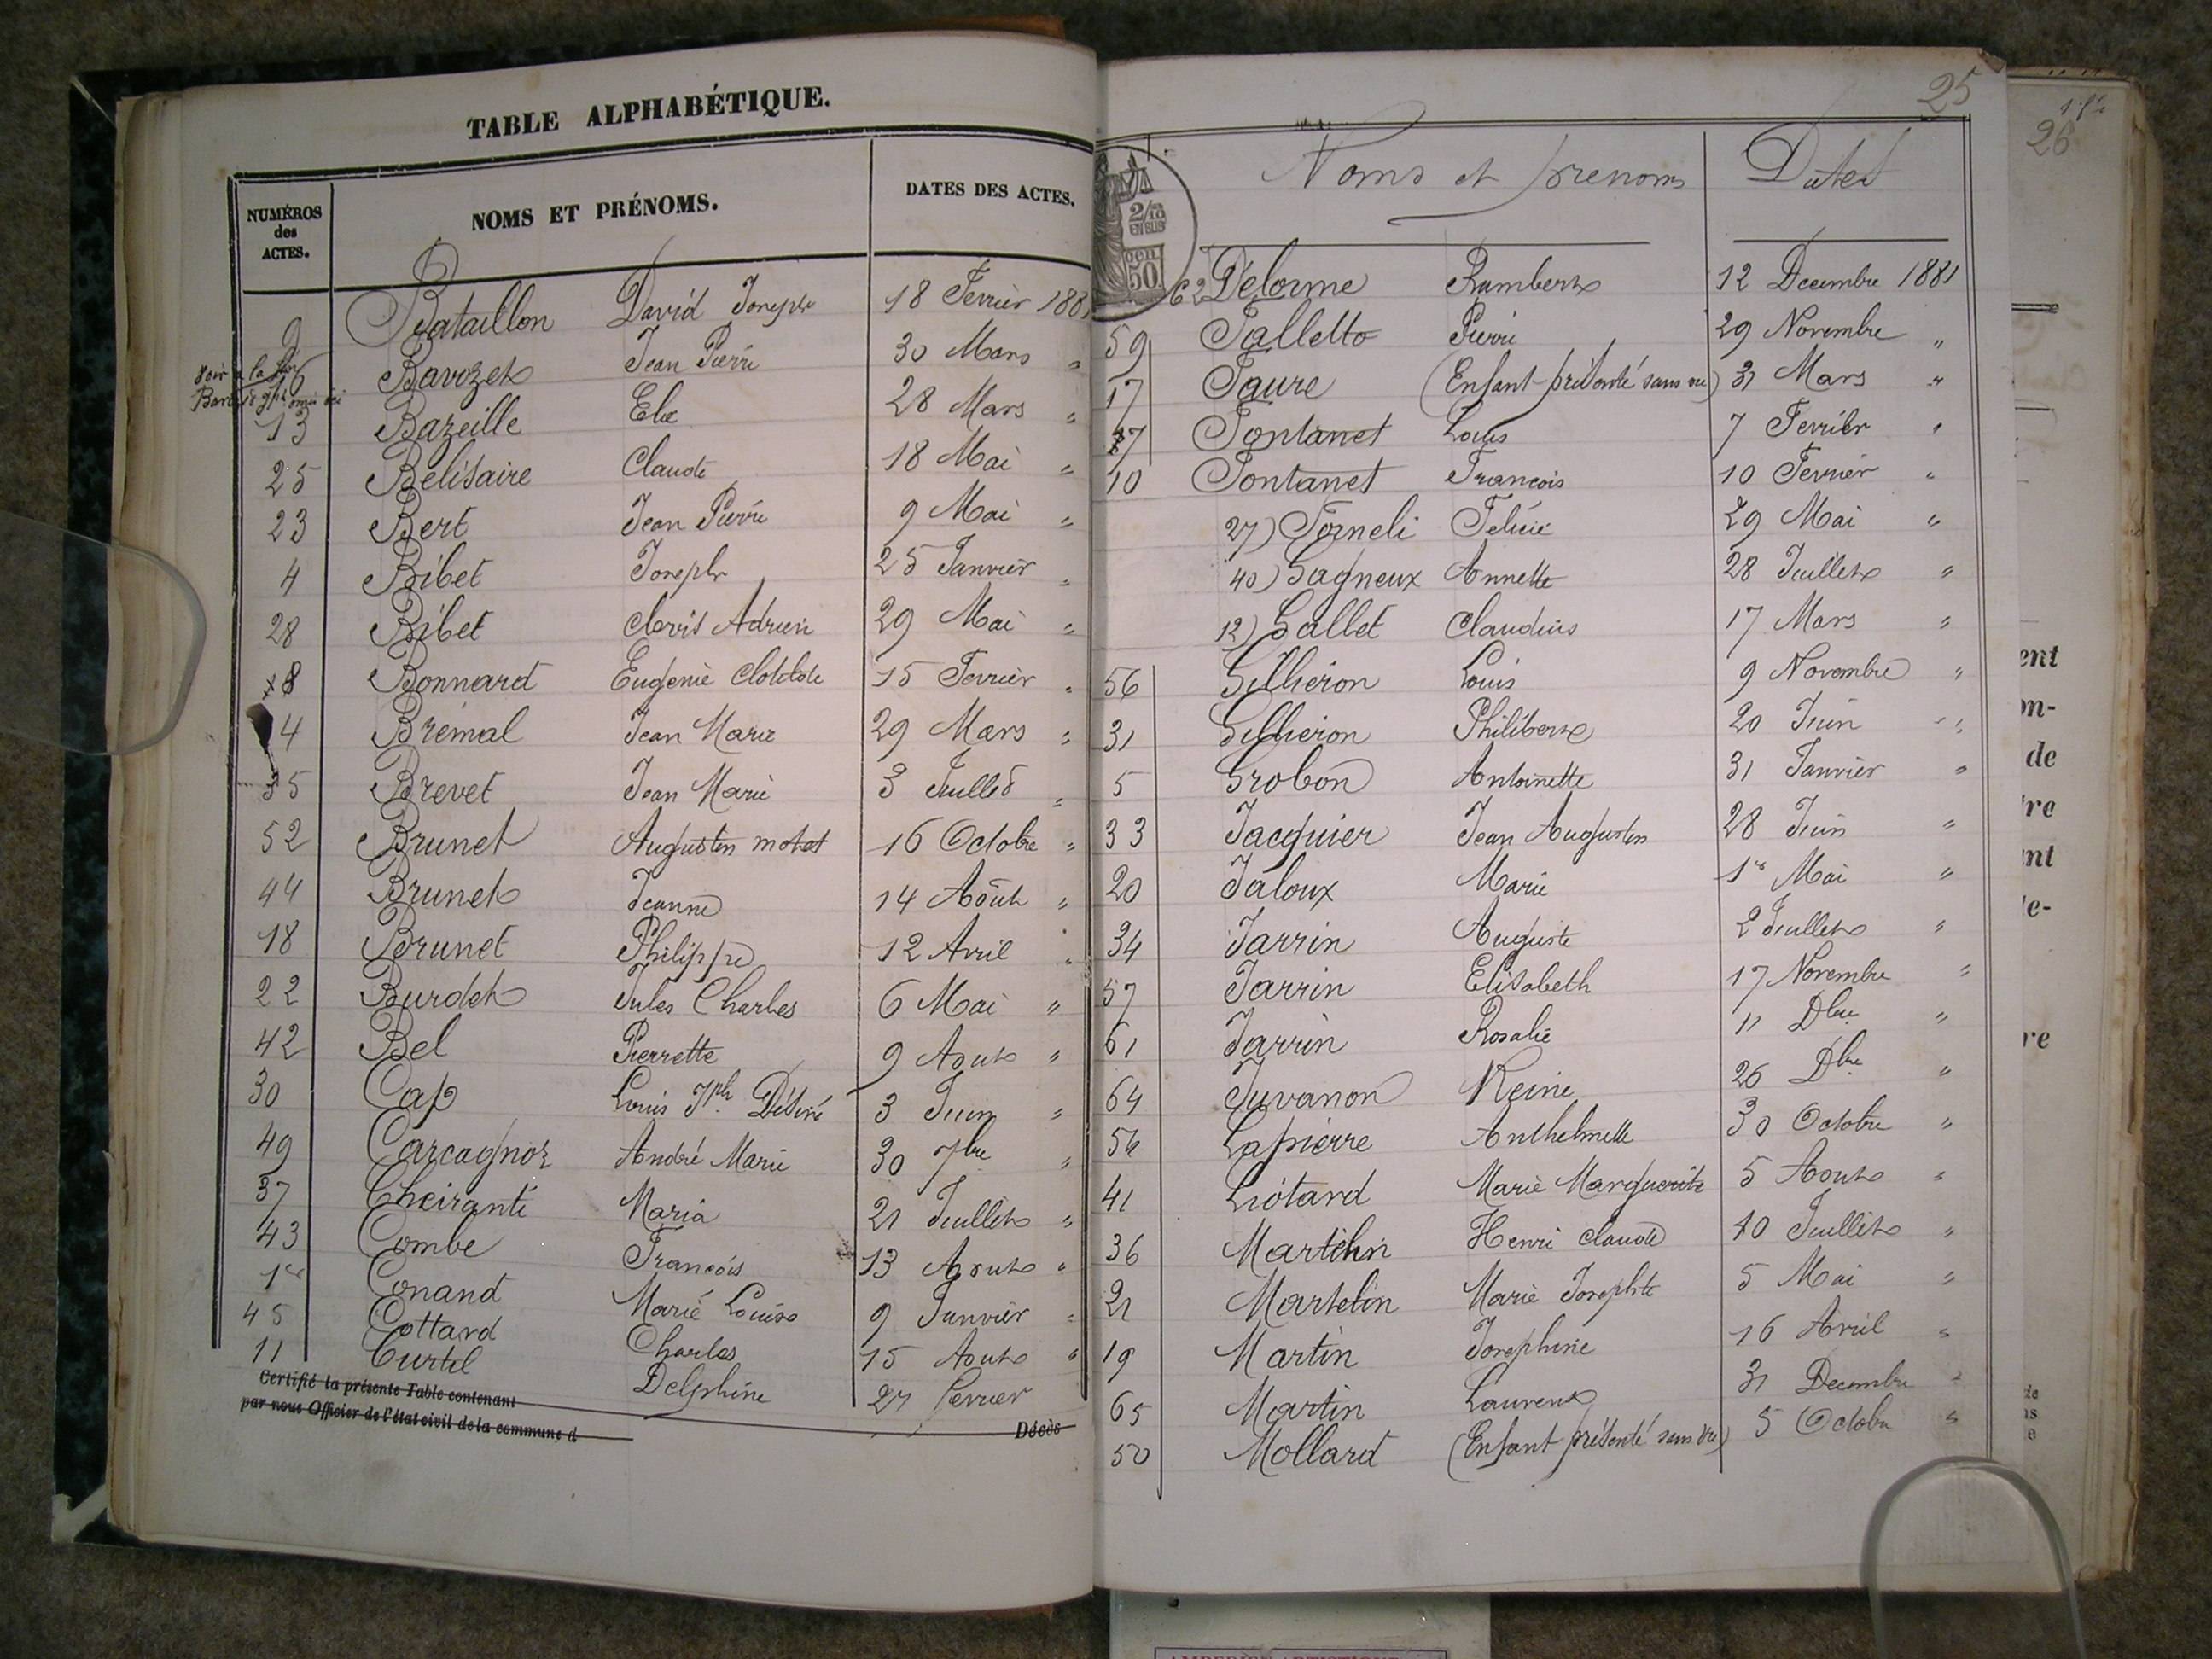 TABLE ALPHABÉTIQUE.
NUMÉROS des ACTES. NOMS ET PRÉNOMS. DATES DES ACTES.
9 Bataillon David Joseph 18 Fevrier 188
Voir a la fin
16 Bavozet Jean Pierre 30 Mars "
13 Bazeille Elie 28 Mars "
25 Belisaire Claude 18 Mai "
23 Bert Jean Pierre 9 Mai "
4 Bibet Joseph 25 Janvier "
28 Bibet Clovis Adrien 29 Mai "
8 Bonnard Eugenie Clotilde 15 Fevrier "
4 Brémal Jean Marie 29 Mars "
35 Brevet Jean Marie 3 Juillet "
52 Brunet Augustin 16 Octobre "
44 Brunet Jeanne 14 Août "
18 Brunet Philippe 12 Avril "
22 Burdet Jules Charles 6 Mai "
42 Bel Pierrette 9 Aout "
30 Cap Louis Jph Désiré 3 Juin "
49 Carcagnoz André Marie 30 7bre "
37 Cheiranti Maria 21 Juillet "
43 Combe François 13 Aout "
1er Conand Marie Louise 9 Janvier "
45 Cottard Charles 15 Aout "
11 Curtil Delphine 27 fevrier
Certifié la présente Table contenant Décès
par nous Officier de l'état civil de la commune d
25
Noms et prenoms Dates
2/10 EN SUS
50
62 Délorme Rambert 12 Decembre 1881
59 Falletto Pierre 29 Novembre "
17 Faure (Enfant présenté sans vie) 31 Mars "
7 Fontanet Louis 7 Fevrier "
10 Fontanet François 10 Fevrier "
27) Forneli Felicie 29 Mai "
40) Gagneux Annette 28 Juillet "
12) Gallet Claudius 17 Mars "
56 Gillieron Louis 9 Novembre "
31 Gillieron Philibert 20 Juin "
5 Grobon Antoinette 31 Janvier "
33 Jacquier Jean Augustin 28 Juin "
20 Jaloux Marie 1er Mai "
34 Jarrin Auguste 2 Juillet "
57 Jarrin Elisabeth 17 Novembre "
61 Jarrin Rosalie 11 Dbre "
64 Juvanon Reine 26 Dbre "
Lapierre Anthelmette 30 Octobre "
41 Liotard Marie Marguerite 5 Aout "
36 Martelin Henri Claude 10 Juillet "
21 Martelin Marie Josephte 5 Mai "
19 Martin Josephine 16 Avril "
65 Martin Laurent 31 Decembre "
50 Mollard (Enfant présenté sans vie) 5 Octobre "
26
ent
on-
de
tre
ant
te-
re